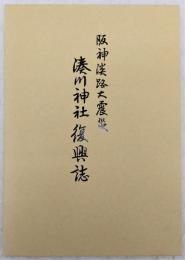 阪神淡路大震災
湊川神社復興誌